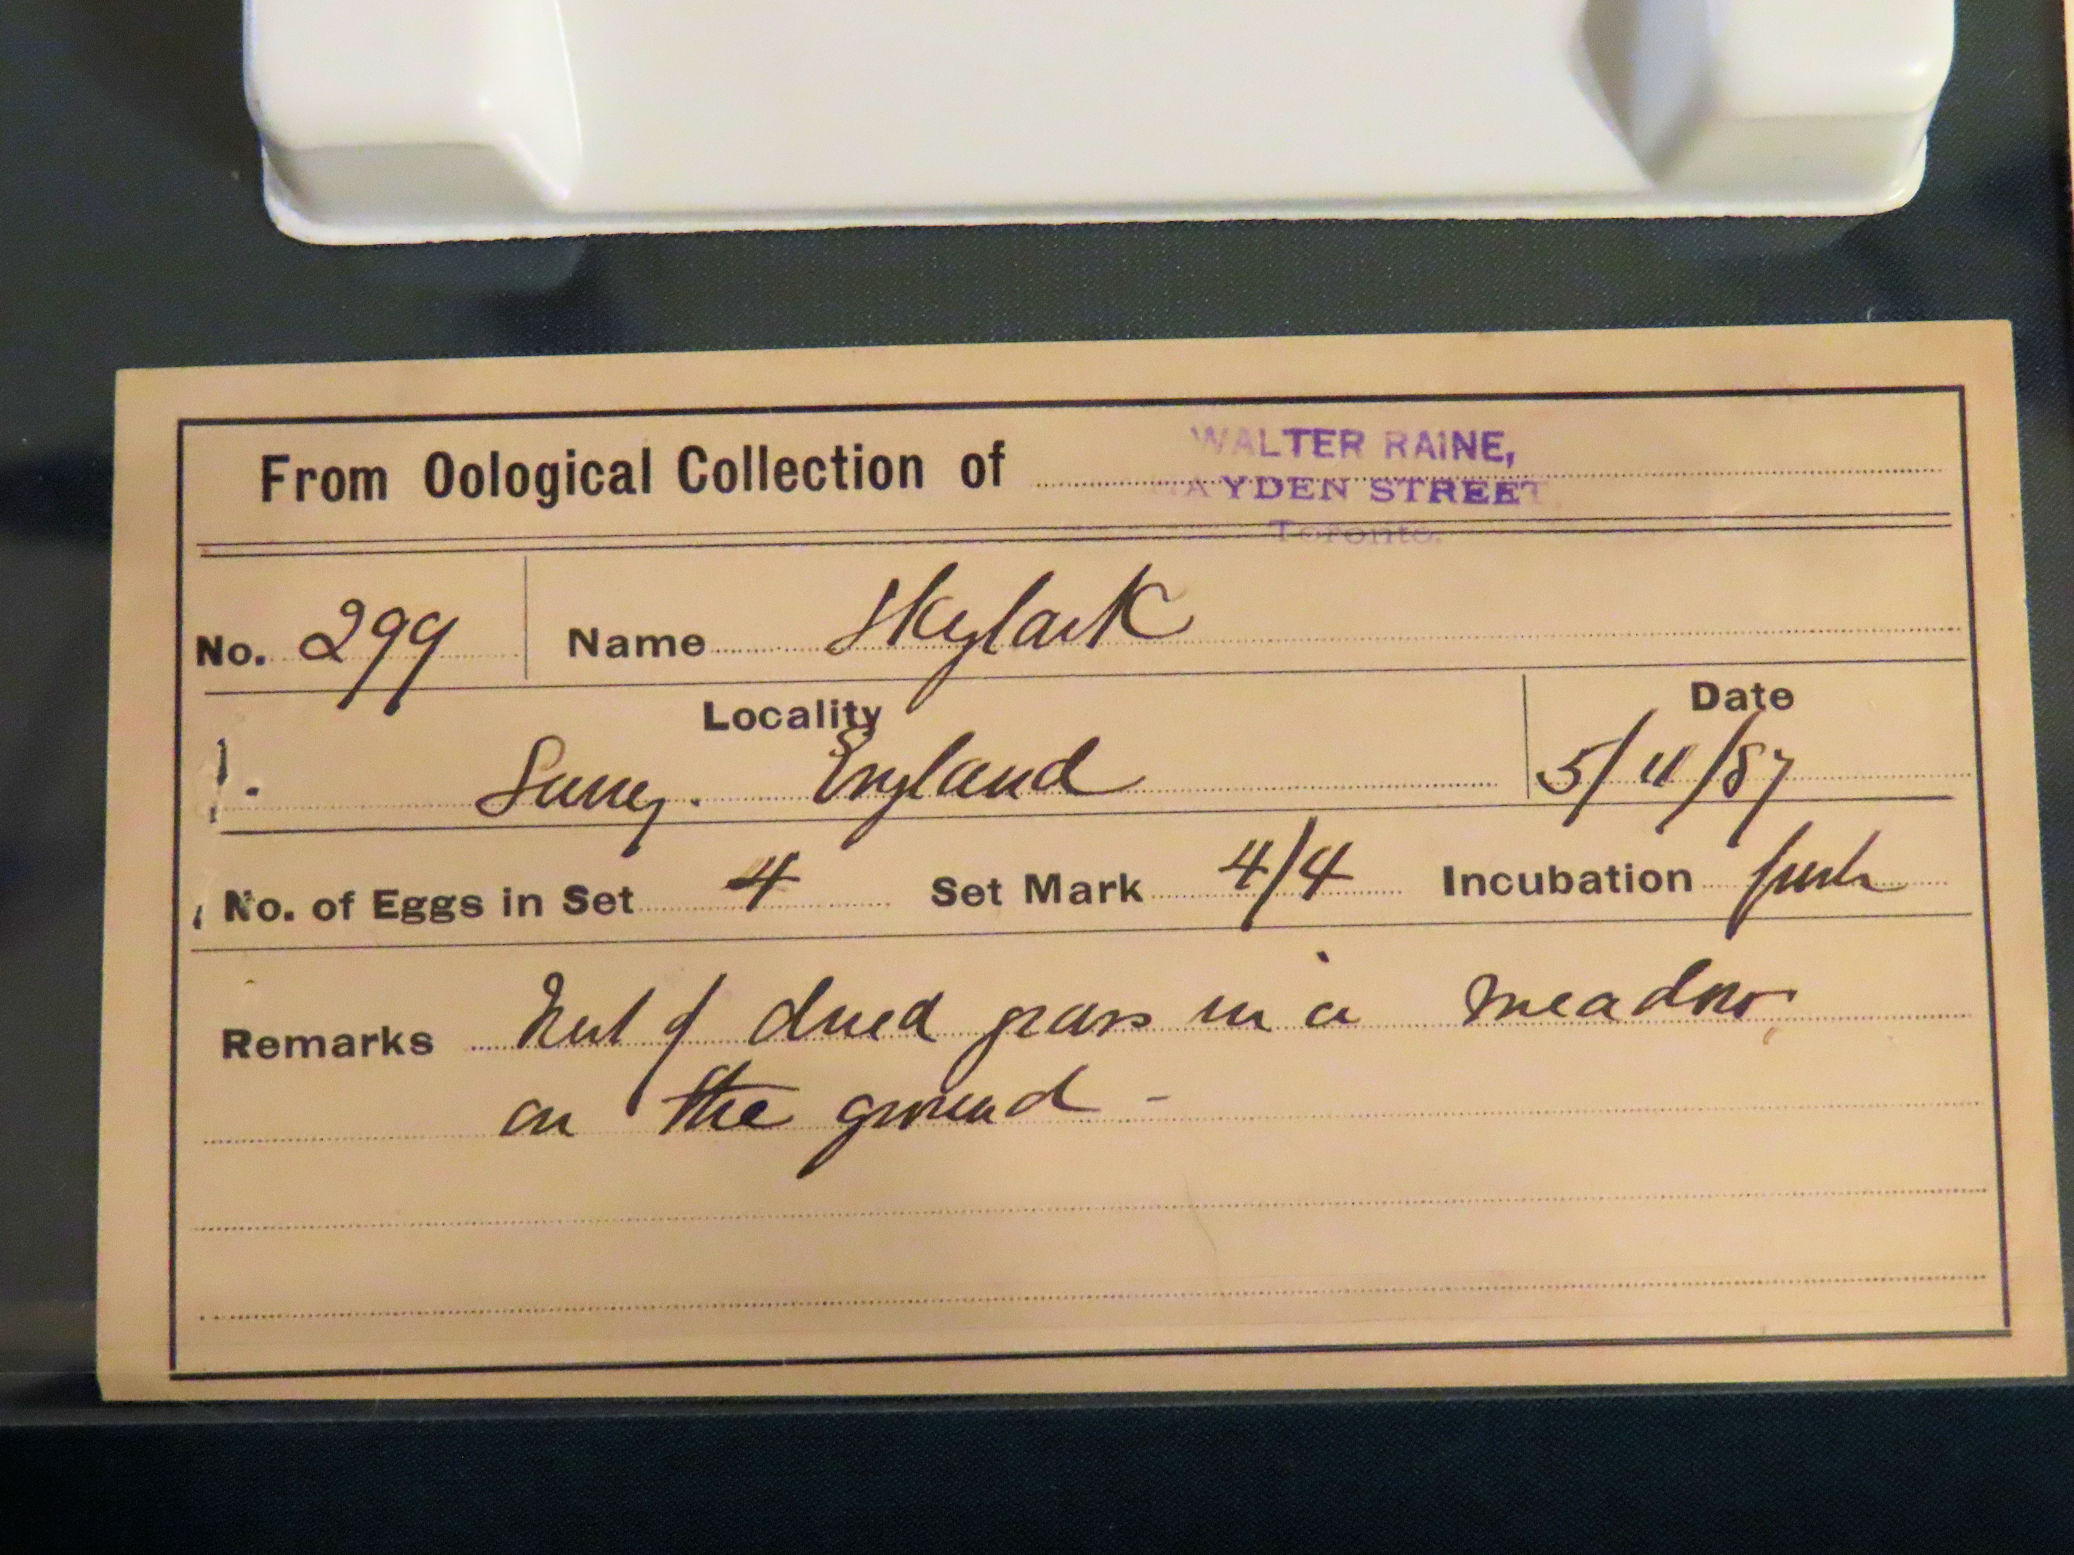 From Oological Collection of WALTER RAINE,
HAYDEN STREET
Toronto.
No. 299 Name Skylark
Locality Date
Surrey. England 5/11/87
No. of Eggs in Set 4 Set Mark 4/4 Incubation fresh
Remarks Nest of dried grass in a meadow
on the ground -